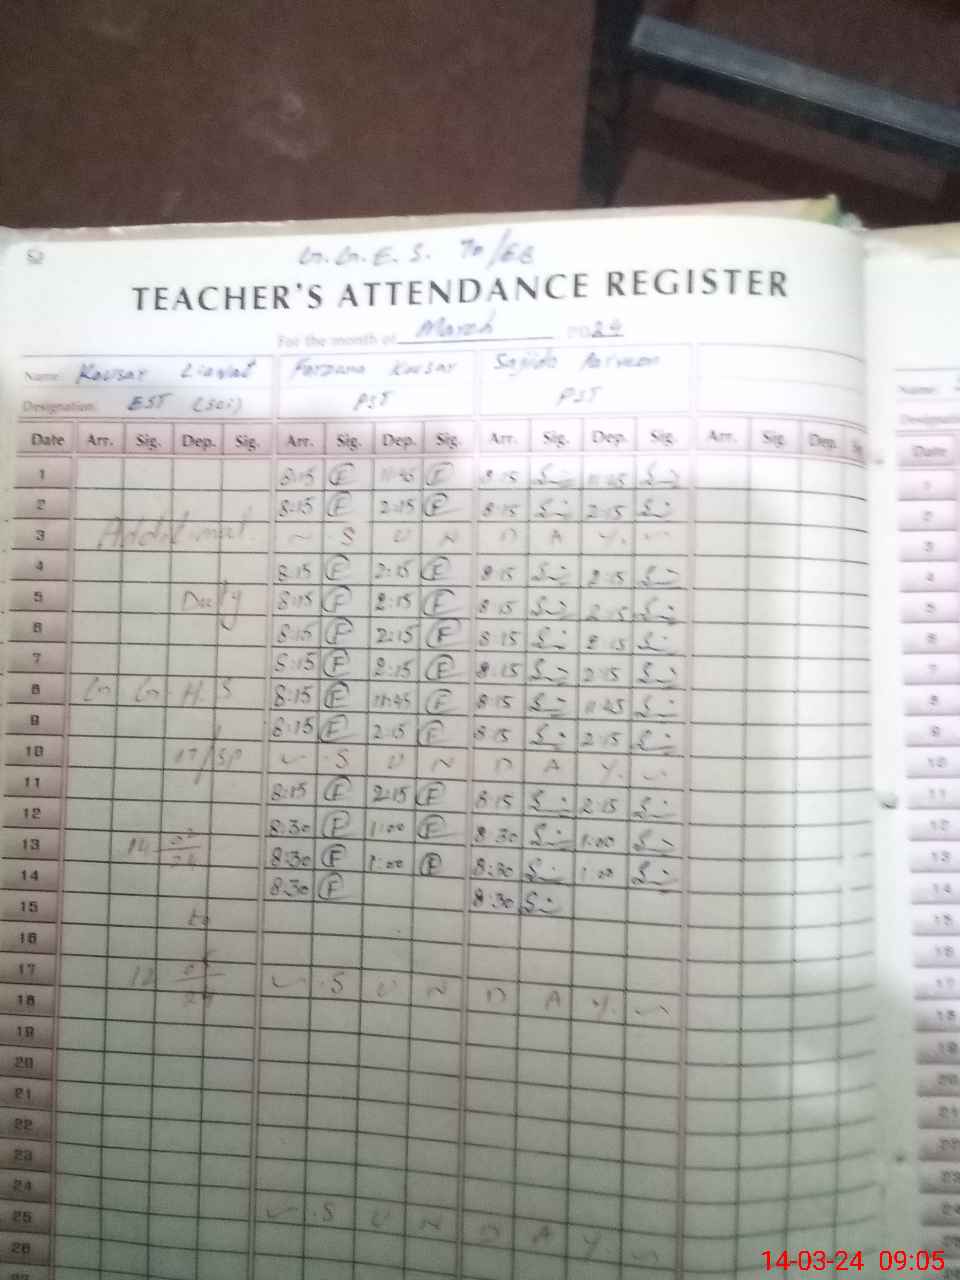 52
G.G.E.S. 70/EB
TEACHER'S ATTENDANCE REGISTER
For the month of March 2024
Name: Kausar Liaqat Farzana Kousar Sajida Parveen
Designation: EST (Sci) PST PST
Date Arr. Sig. Dep. Sig. Arr. Sig. Dep. Sig. Arr. Sig. Dep. Sig. Arr. Sig. Dep.
1 8:15 F 11:45 F 8:15 11:45
2 8:15 F 2:15 F 8:15 2:15
3 Additional S U N D A Y.
4 8:15 F 2:15 F 8:15 2:15
5 Duty 8:15 F 2:15 F 8:15 2:15
6 8:15 F 2:15 F 8:15 2:15
7 8:15 F 2:15 F 8:15 2:15
8 G G H. S 8:15 F 11:45 F 8:15 11:45
9 8:15 F 2:15 F 8:15 2:15
10 S U N D A Y.
11 8:15 F 2:15 F 8:15 2:15
12 8:30 F 1:00 F 8:30 1:00
13 8:30 F 1:00 F 8:30 1:00
14 8:30 F 8:30
15 to
16
17 S U N D A Y.
18
19
20
21
22
23
24 S U N D A Y.
25
26
14-03-24 09:05